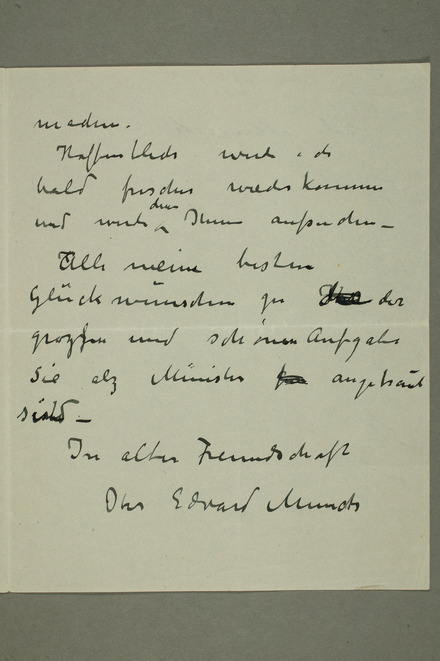 machen.
Hoffentlich werde ich
bald frischer wieder kommen
und werde dan Ihnen aufsuchen –
Alle meine besten
Glückwünschen zu der
grozsen und schönen Aufgabe
Sie alz Minister angetraut
sind –
In alter Freundschaft
Ihr Edvard Munch